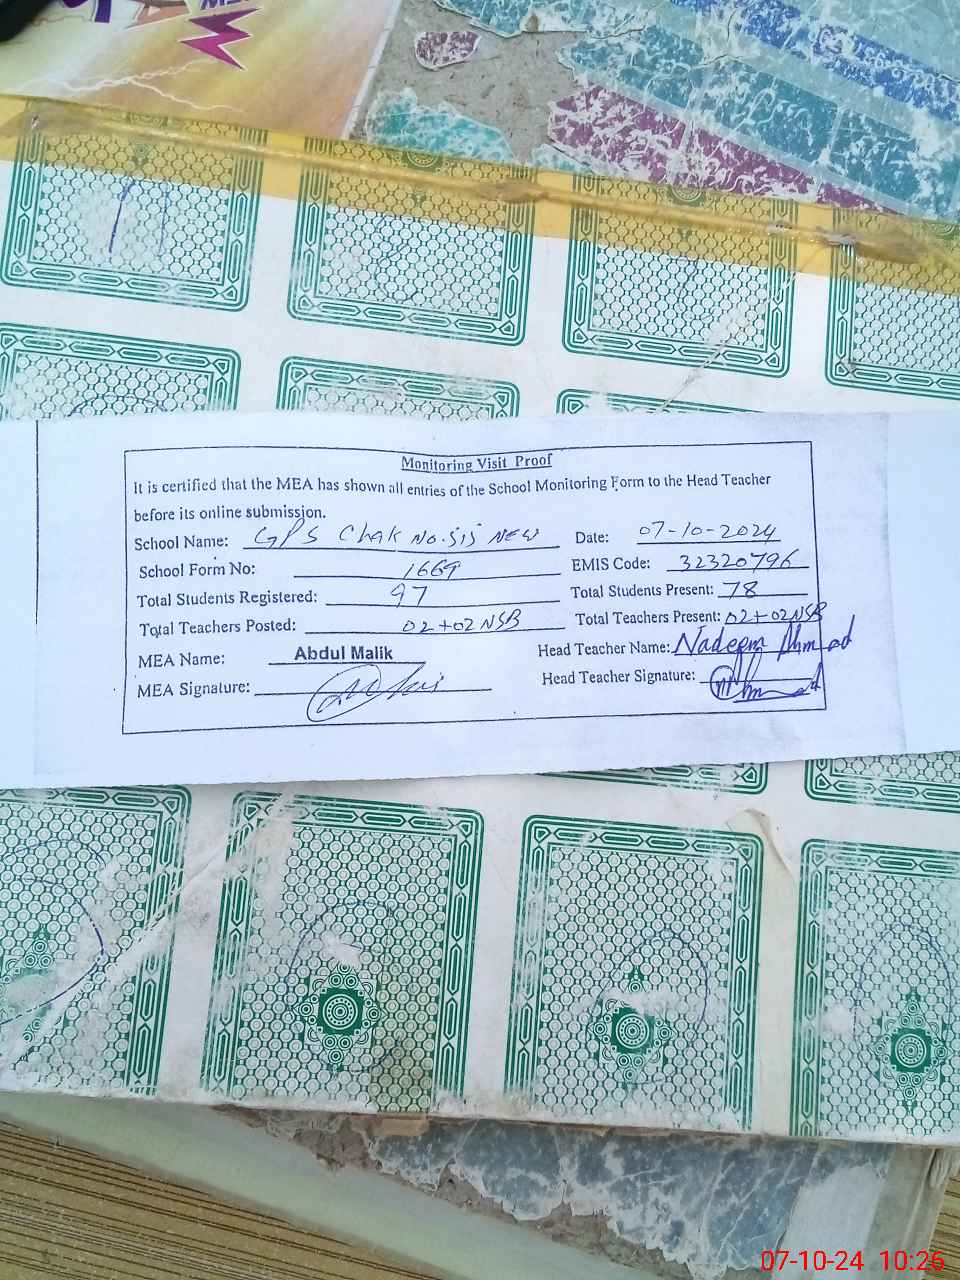 Monitoring Visit Proof
It is certified that the MEA has shown all entries of the School Monitoring Form to the Head Teacher
before its online submission.
School Name: GPS Chak No. NEW Date: 07-10-2024
School Form No: 1669 EMIS Code: 32320796
Total Students Registered: 97 Total Students Present: 78
Total Teachers Posted: 02+02NSB Total Teachers Present: 02+02NSB
MEA Name: Abdul Malik Head Teacher Name: Nadeem Ahmad
MEA Signature: Head Teacher Signature:
07-10-24 10:26